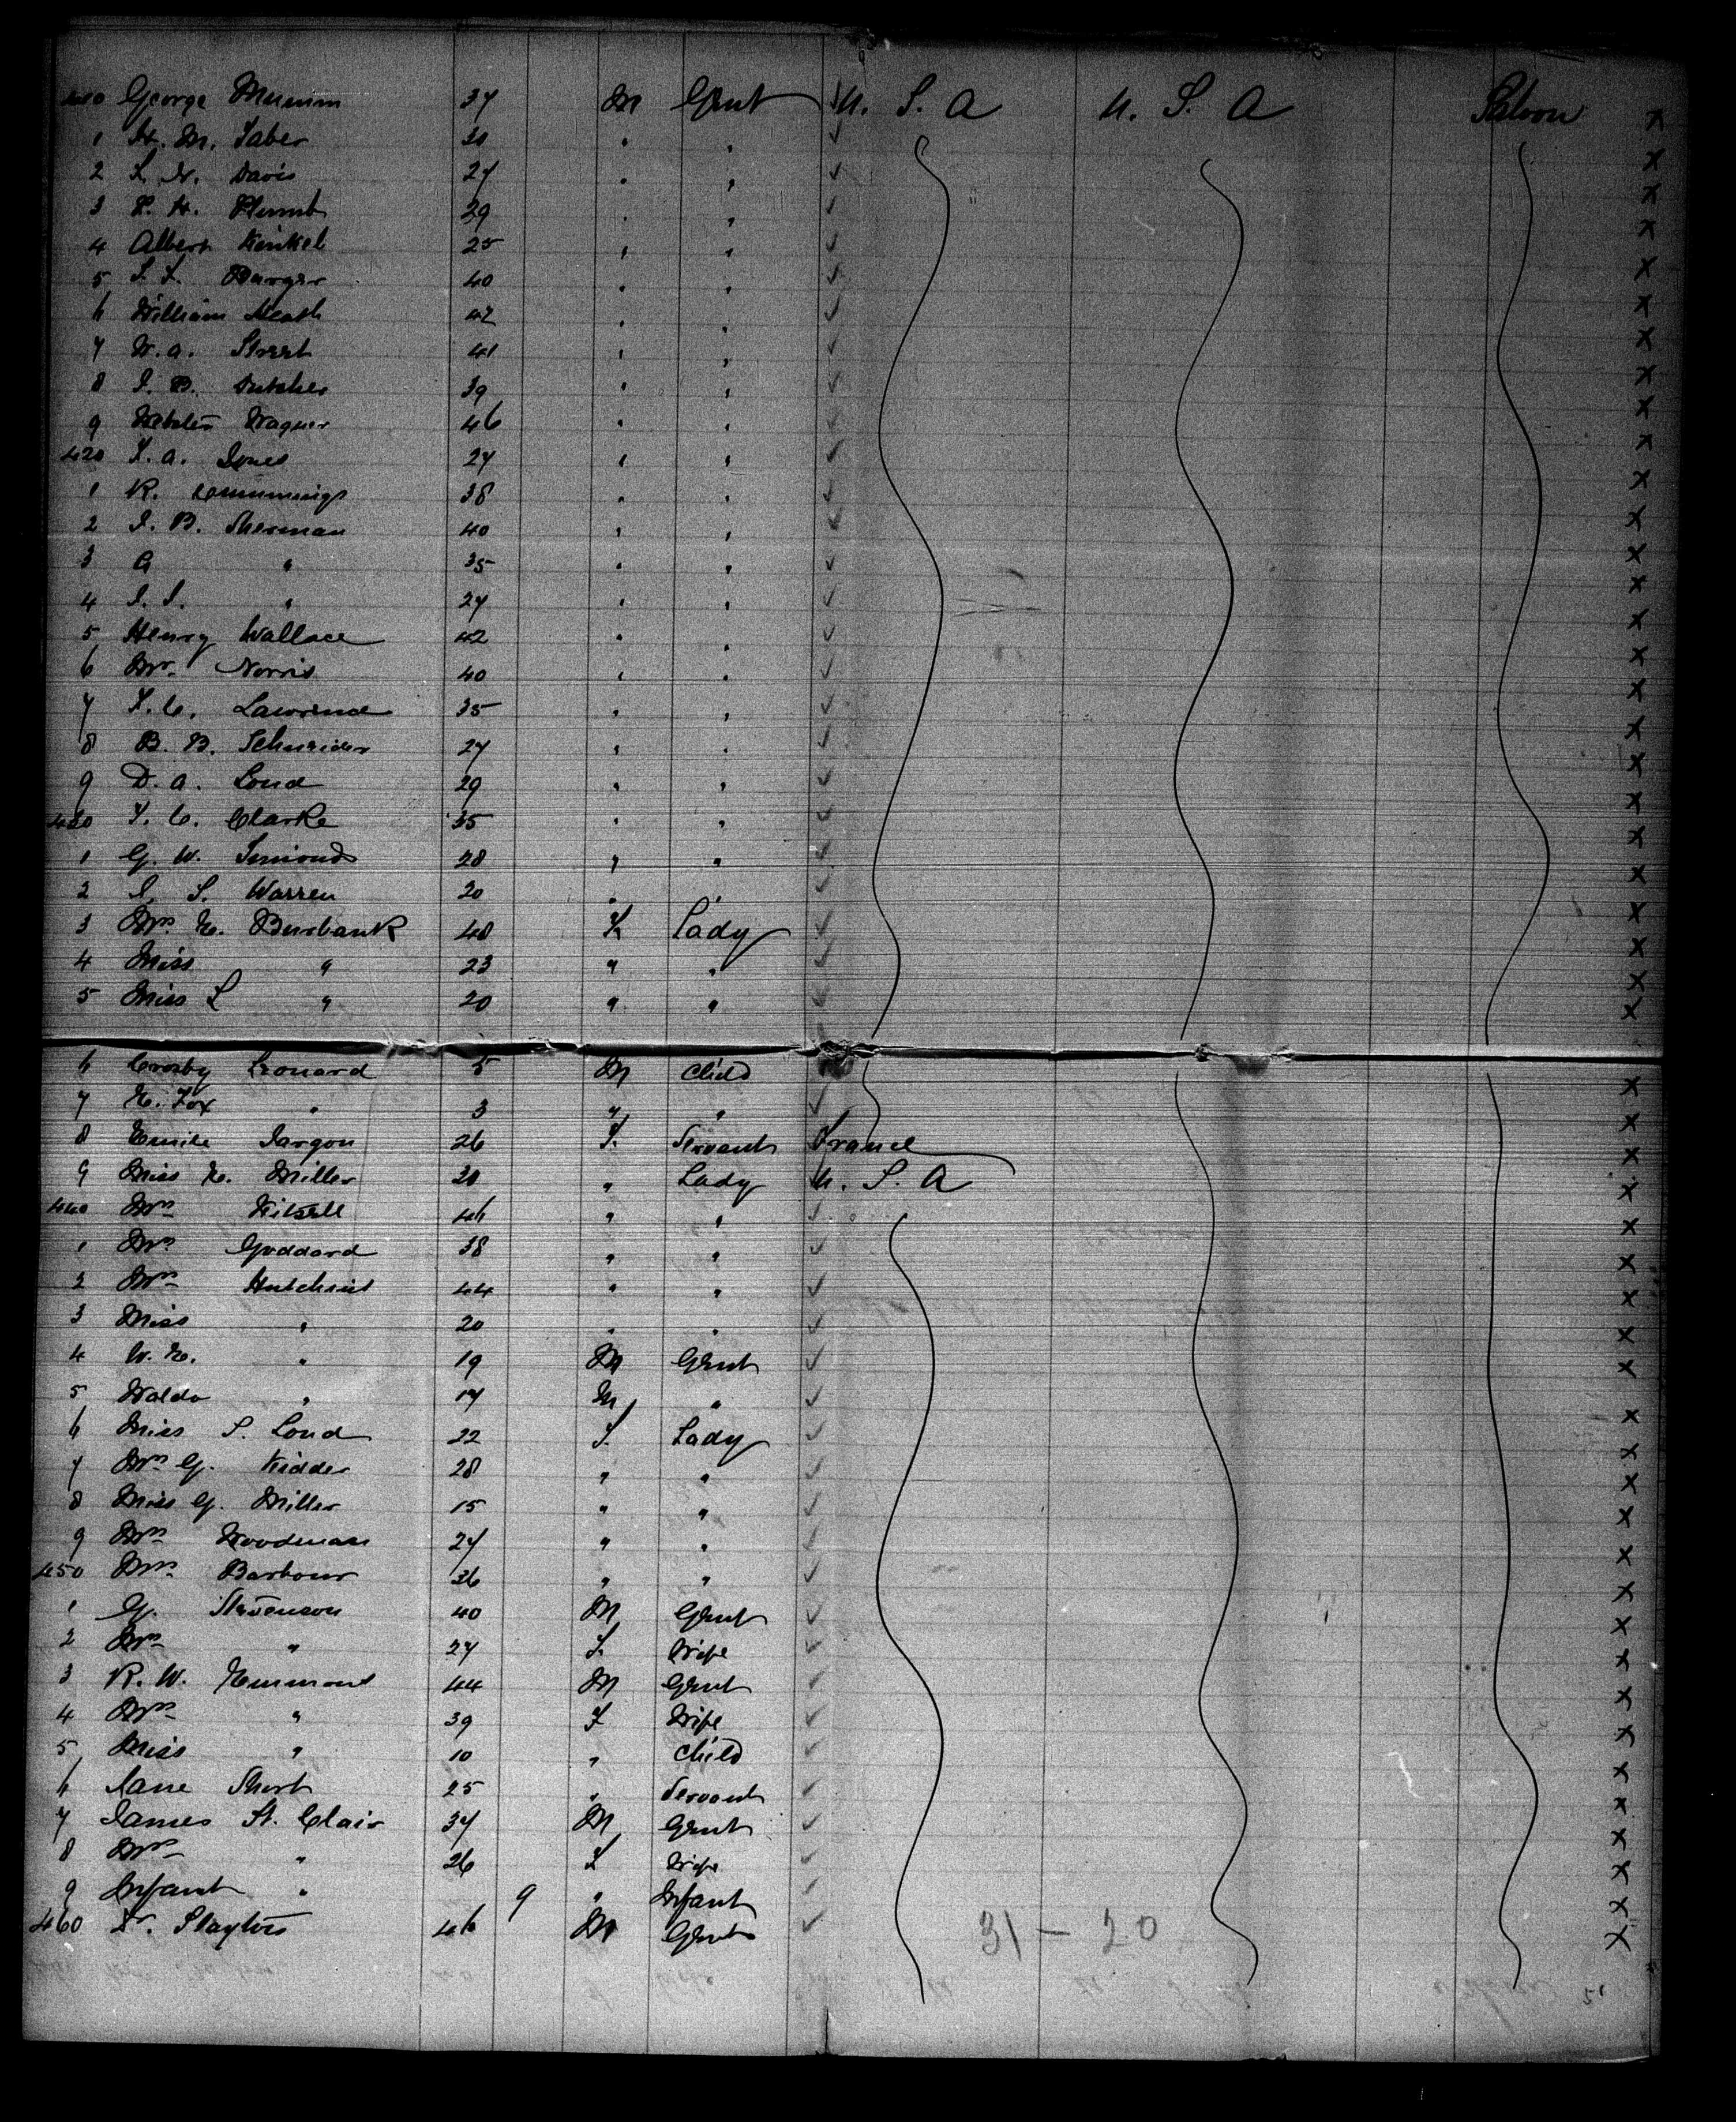 410 George Mumm 37 M Gent U. S. A U. S. A Saloon X
1 H. M. Taber 30 " " X
2 L. N. Davis 27 " " X
3 P. H. Plumb 29 " " X
4 Albert Kinkel 25 " " X
5 S. F. Barger 40 " " X
6 William Heath 42 " " X
7 W. A. Street 41 " " X
8 J. B. Dutcher 39 " " X
9 Webster Wagner 46 " " X
420 F. A. Ives 27 " " X
1 R. Cummings 38 " " X
2 I. B. Sherman 40 " " X
3 G " 35 " " X
4 I. S. " 27 " " X
5 Henry Wallace 42 " " X
6 Mr. Norris 40 " " X
7 F. C. Lawrence 35 " " X
8 B. B. Schneider 27 " " X
9 D. A. Loud 29 " " X
430 F. C. Clarke 35 " " X
1 G. W. Simonds 28 " " X
2 I. S. Warren 20 " " X
3 Mrs. E. Burbank 48 F Lady X
4 Miss " 23 " " X
5 Miss L " 20 " " X
6 Crosby Leonard 5 M Child X
7 E. Fox " 3 " " X
8 Emile Jargon 26 F. Servant France X
9 Miss E. Miller 20 " Lady U. S. A X
440 Mrs Kitsell 46 " " X
1 Mrs Goddard 38 " " X
2 Mrs Hutchins 44 " " X
3 Miss " 20 " " X
4 W. E. " 19 M Gent X
5 Waldo " 17 M " X
6 Miss S. Loud 22 F. Lady X
7 Mrs G. Kidder 28 " " X
8 Miss G. Miller 15 " " X
9 Mrs Woodman 27 " " X
450 Mrs Barbour 36 " " X
1 G. Stevenson 40 M Gent X
2 Mrs " 27 F. Wife X
3 R. W. Emmons 44 M Gent X
4 Mrs " 39 F Wife X
5 Miss " 10 " Child X
6 Jane Short 25 " Servant X
7 James St. Clair 37 M Gent X
8 Mrs " 26 F Wife X
9 Infant " 9 " Infant X
460 Dr. Slayter 46 M Gent X
31 – 20
51